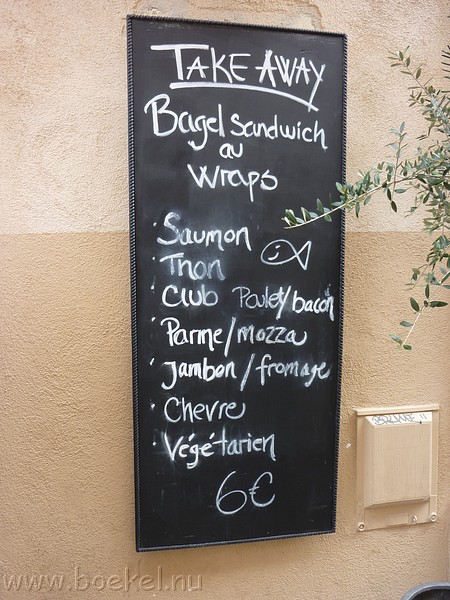 TAKE AWAY
Bagel sandwich
au
wraps
Saumon
Thon
Club Poulet/bacon
Parme/mozza
Jambon/fromage
Chevre
Végétarien
6€
www.boekel.nu